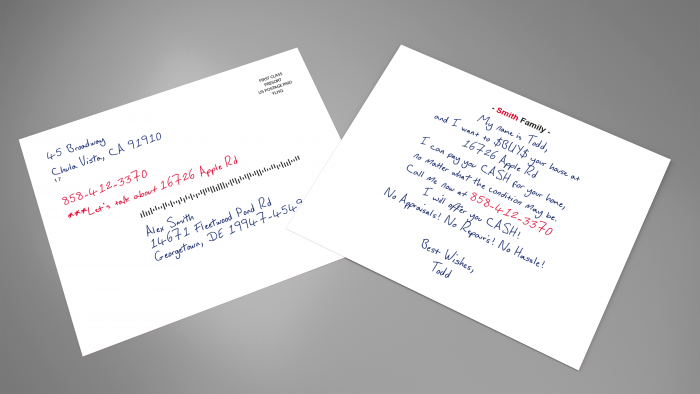 FIRST CLASS
PRESORT
US POSTAGE PAID
YLHQ
45 Broadway
Chula Vista, CA 91910
858-412-3370
***Let's talk about 16726 Apple Rd
Alex Smith
14671 Fleetwood Pond Rd
Georgetown, DE 19947-4549
- Smith Family -
My name is Todd,
and I want to $BUY$ your house at
16726 Apple Rd
I can pay you CASH for your home,
no matter what the condition may be.
Call Me now at 858-412-3370
I will offer you CASH!
No Appraisals! No Repairs! No Hassle!
Best Wishes,
Todd